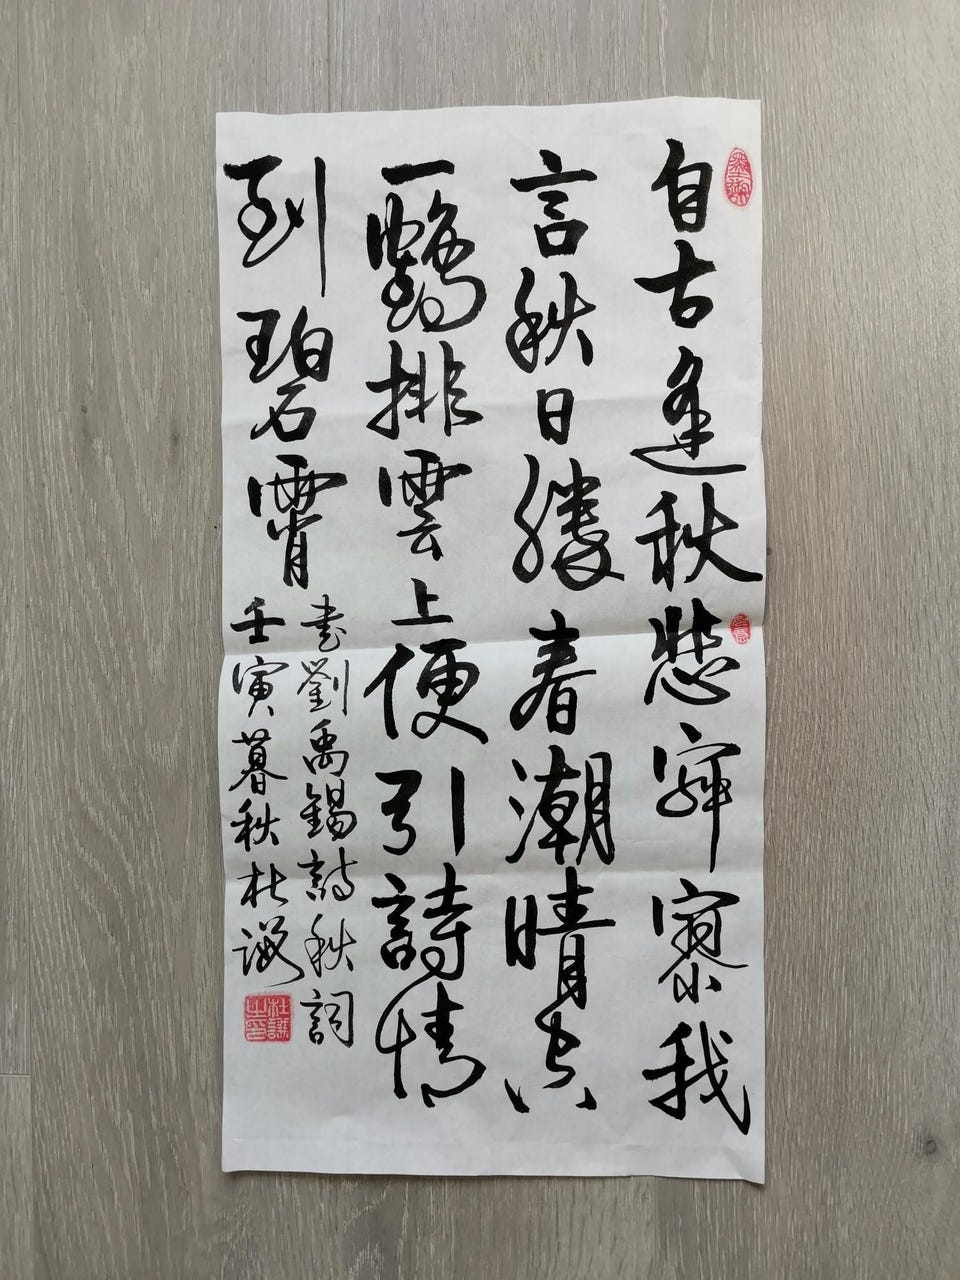 自古逢秋悲寂寥我
言秋日勝春潮晴空
一鶴排雲上便引詩情
到碧霄
書劉禹錫詩秋詞
壬寅暮秋杜